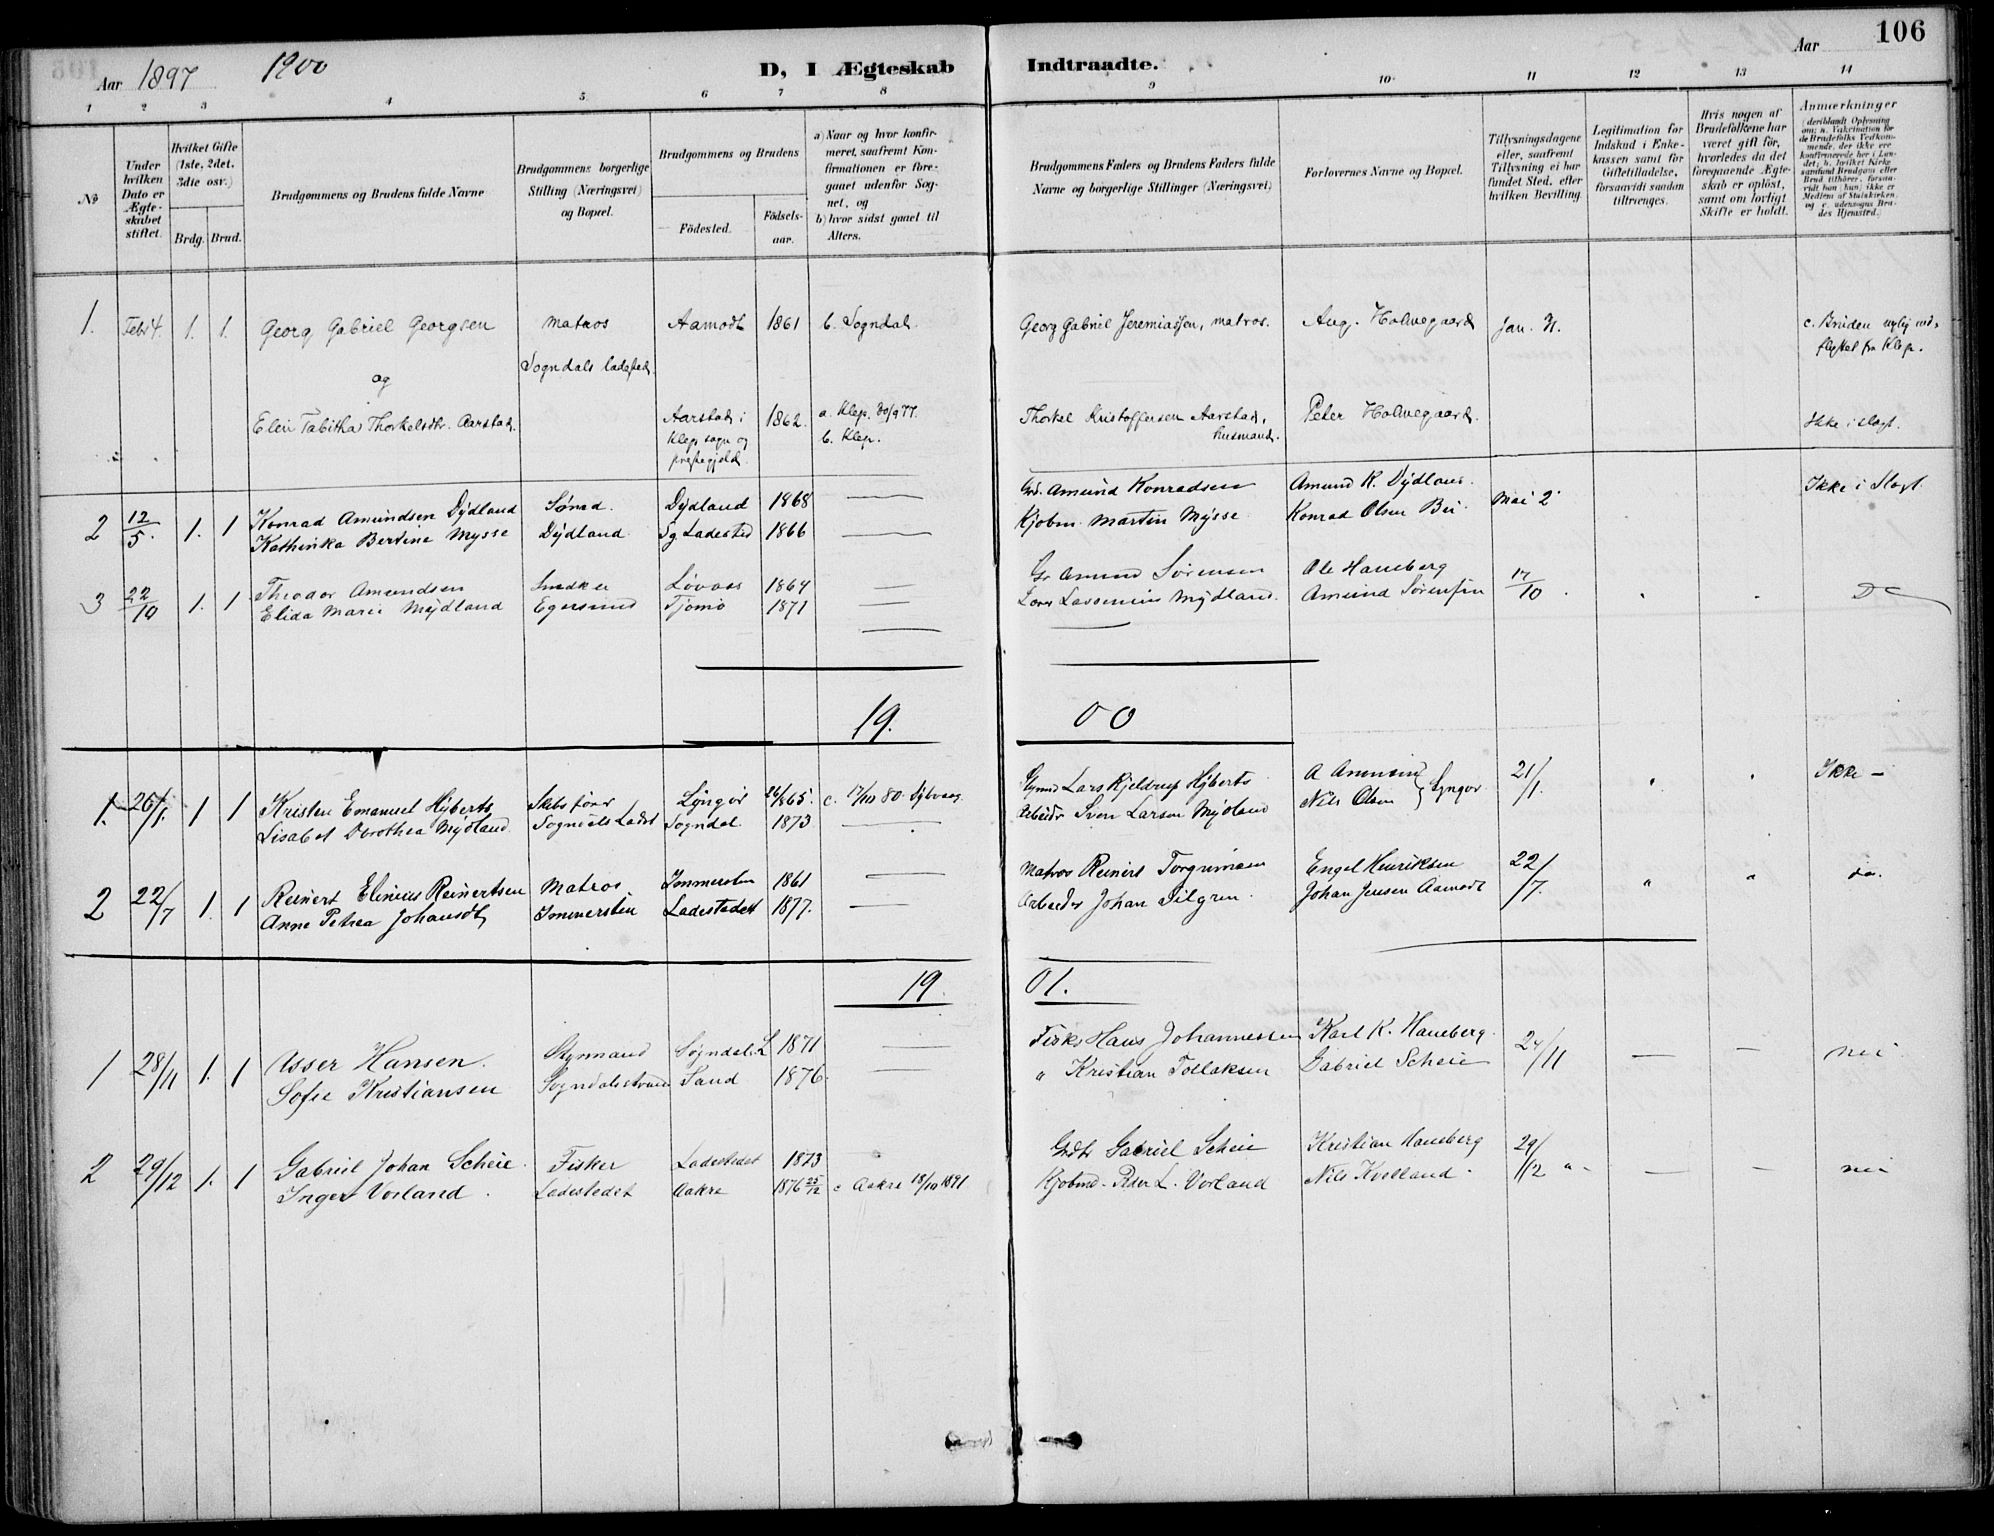 Aar 1897 1900
D, I Ægteskab Indtraadte.
Aar 106
1 2 3 4 5 6 7 8 9 10 11 12 13 14
No
Under hvilken Dato er Ægteskabet stiftet.
Hvilket Gifte (1ste, 2det, 3die osv.)
Brdg. Brud.
Brudgommens og Brudens fulde Navne
Brudgommens borgerlige Stilling (Næringsvei) og Bopæl.
Brudgommens og Brudens
Födested. Födselsaar.
a) Naar og hvor konfirmeret, saafremt Konfirmationen er foregaaet udenfor Sognet, og
b) hvor sidst gaaet til Alters.
Brudgommens Faders og Brudens Faders fulde Navne og borgerlige Stillinger (Næringsvei)
Forlovernes Navne og Bopæl.
Tillysningsdagene eller, saafremt Tillysning ei har fundet Sted, efter hvilken Bevilling
Legitimation for Indskud i Enkekassen samt for Giftetilladelse, forsaavidt saadan tiltrænges.
Hvis nogen af Brudefolkene har været gift før, hvorledes da det foregaaende Ægteskab er opløst, samt om lovligt Skifte er holdt.
Anmærkninger
1. Feb. 4. 1. 1. Georg Gabriel Georgsen matros Aamodt 1861 b. Sogndal. Georg Gabriel Jeremiassen, matros. Aug. Holmegaard Jan. 31. c. Bruden nylig ind-
Sogndals ladested flyttet fra Klep.
og
Elen Tabitha Thorkelsdtr. Aarstad. Aarstad i 1862. a. Klep. 30/9 77. Thorkel Kristoffersen Aarstad, Peter Holmegaard. Ikke i slægt.
Klep sogn og b. Klep. husmand.
prestegjeld
2 12/5. 1. 1 Konrad Amundsen Dydland Dydland 1868 Amund Konradsen Amund K. Dydland Mai 2 Ikke i Slægt
Kathinka Bertine Mysse Dydland Sg Ladested 1866 Kjøbm. Martin Mysse Konrad Olsen
3 22/10 1. 1 Theodor Amundsen Løvaas 1864 Amund Sørensen Ole Haneberg 17/10
Elida Marie Mydland Egersund Tjomø 1871 Mydland. Amund Sørensen
19. 00
1. 26/1. 1 1 Kristen Emanuel Hyberts Skibsfører Lyngør Lars Kjeldrup Hyberts 21/1. Ikke -
Lisabet Dorothea Mydland Sogndals Ladst Sogndal. 1873 Arbeidr Sven Larsen Mydland Nils Olsen Lyngør
2 22/7 1. 1 Reinert Elinius Reinertsen Matros Immersten 1861 Matros Reinert Torgrimsen Engel Henriksen 22/7. do.
Anne Petrea Johansdt Immersten Ladestedet 1877. Arbeider Johan Pilgrim. Johan Jensen Aamodt
19 01.
1 28/11 1. 1 Asser Hansen. Styrmand Sogndal L 1871 Fisker Hans Johannessen Karl K. Haneberg. 24/11 nei
Sofie Kristiansen Sogndalsstrand Sand 1876. " Kristian Tollaksen Gabriel Scheie
2 29/12 1. 1 Gabriel Johan Scheie. Fisker Ladestedet 1873 Grdb Gabriel Scheie Kristian Haneberg nei
Inger Vorland. Ladestedet Aakre 1876 25/12 c Aakre 18/10 1891 Kjøbmd. Peder L. Vorland Nils Kvelland